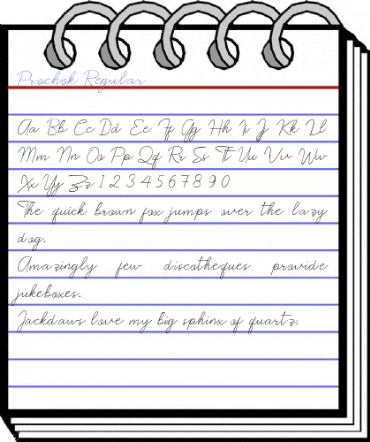 Prochok Regular
Aa Bb Cc Dd Ee Ff Gg Hh Ii Jj Kk Ll
Mm Nn Oo Pp Qq Rr Ss Tt Uu Vv Ww
Xx Yy Zz 1 2 3 4 5 6 7 8 9 0
The quick brown fox jumps over the lazy
dog.
Amazingly few discotheques provide
jukeboxes.
Jackdaws love my big sphinx of quartz.